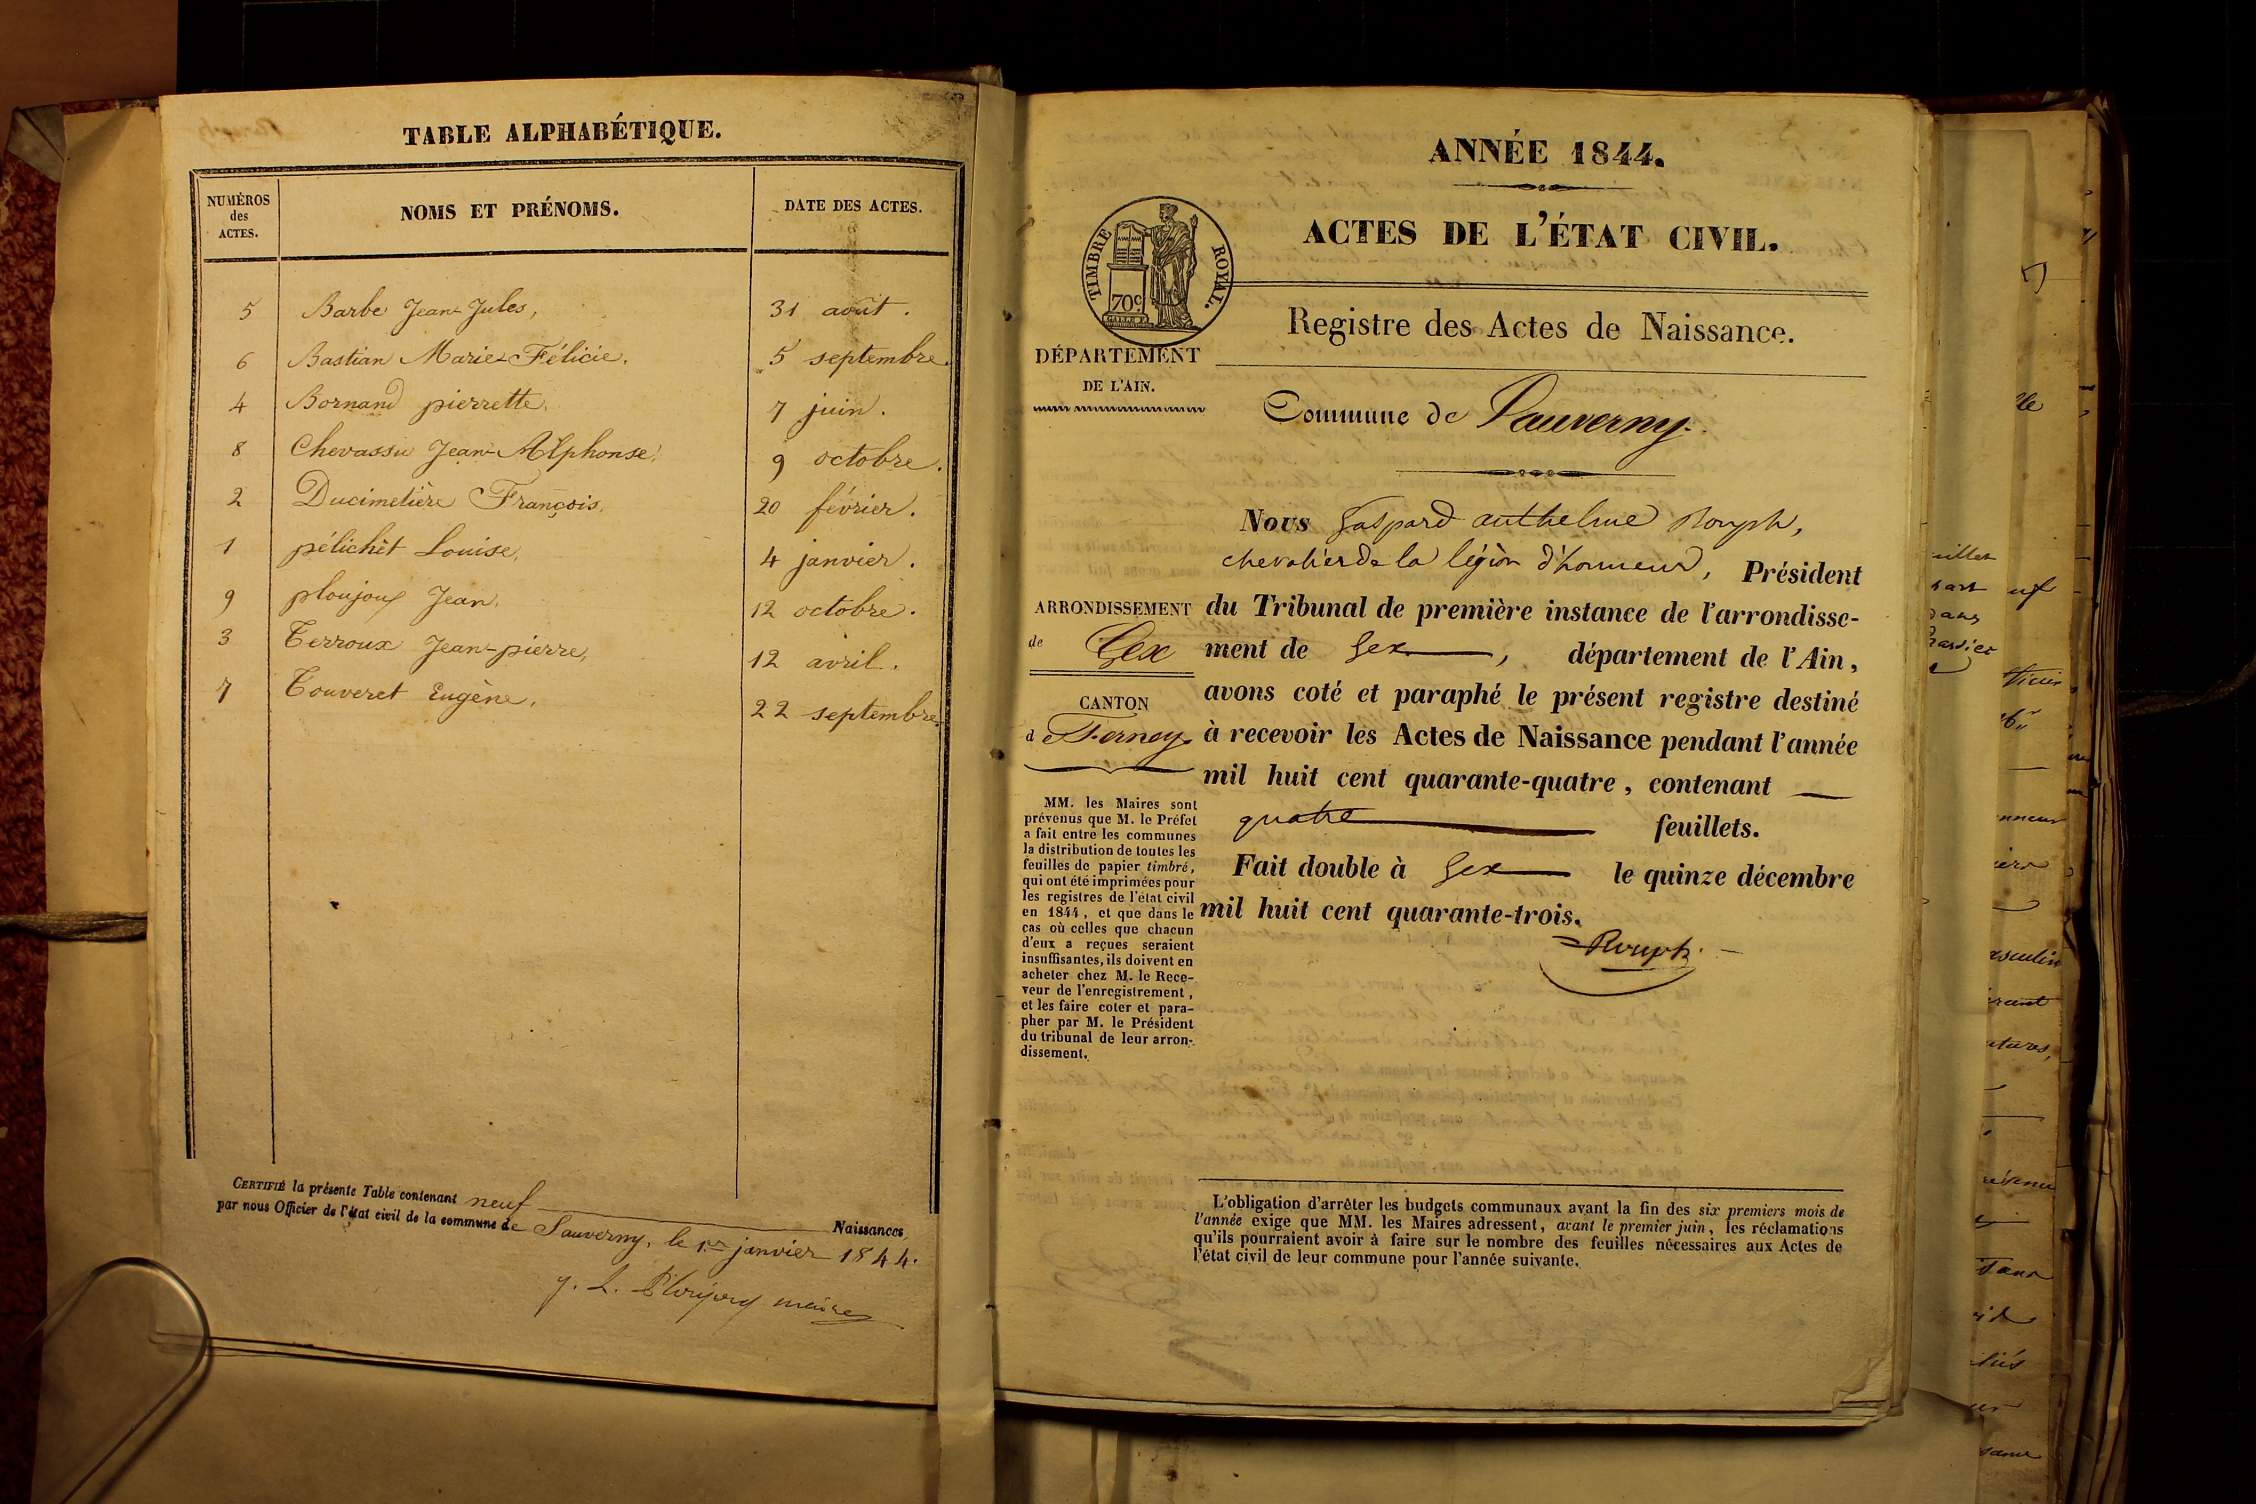 TABLE ALPHABÉTIQUE.
NUMÉROS des ACTES.
NOMS ET PRÉNOMS.
DATE DES ACTES.
5 Barbe Jean-Jules, 31 août.
6 Bastian Marie-Félicie. 5 septembre.
4 Bornand pierrette. 7 juin.
8 Chevassu Jean-Alphonse. 9 octobre.
2 Ducimetière François. 20 février.
1 pélichet Louise. 4 janvier.
9 ploujoux Jean. 12 octobre.
3 Terroux Jean-pierre, 12 avril.
7 Touveret Eugène. 22 septembre.
CERTIFIÉ la présente Table contenant neuf Naissances,
par nous Officier de l'état civil de la commune de Sauverny, le 1er janvier 1844.
maire
ANNÉE 1844.
ACTES DE L'ÉTAT CIVIL.
TIMBRE ROYAL.
70c
Registre des Actes de Naissance.
DÉPARTEMENT
DE L'AIN.
Commune de Sauverny.
Nous Gaspard anthelme Rouph,
chevalier de la légion d'honneur, Président
ARRONDISSEMENT
de Gex
CANTON
de Ferney
du Tribunal de première instance de l'arrondisse-
ment de Gex, département de l'Ain,
avons coté et paraphé le présent registre destiné
à recevoir les Actes de Naissance pendant l'année
mil huit cent quarante-quatre, contenant
quatre feuillets.
Fait double à Gex le quinze décembre
mil huit cent quarante-trois.
Rouph.
MM. les Maires sont
prévenus que M. le Préfet
a fait entre les communes
la distribution de toutes les
feuilles de papier timbré,
qui ont été imprimées pour
les registres de l'état civil
en 1844, et que dans le
cas où celles que chacun
d'eux a reçues seraient
insuffisantes, ils doivent en
acheter chez M. le Rece-
veur de l'enregistrement,
et les faire coter et para-
pher par M. le Président
du tribunal de leur arron-
dissement.
L'obligation d'arrêter les budgets communaux avant la fin des six premiers mois de
l'année exige que MM. les Maires adressent, avant le premier juin, les réclamations
qu'ils pourraient avoir à faire sur le nombre des feuilles nécessaires aux Actes de
l'état civil de leur commune pour l'année suivante.